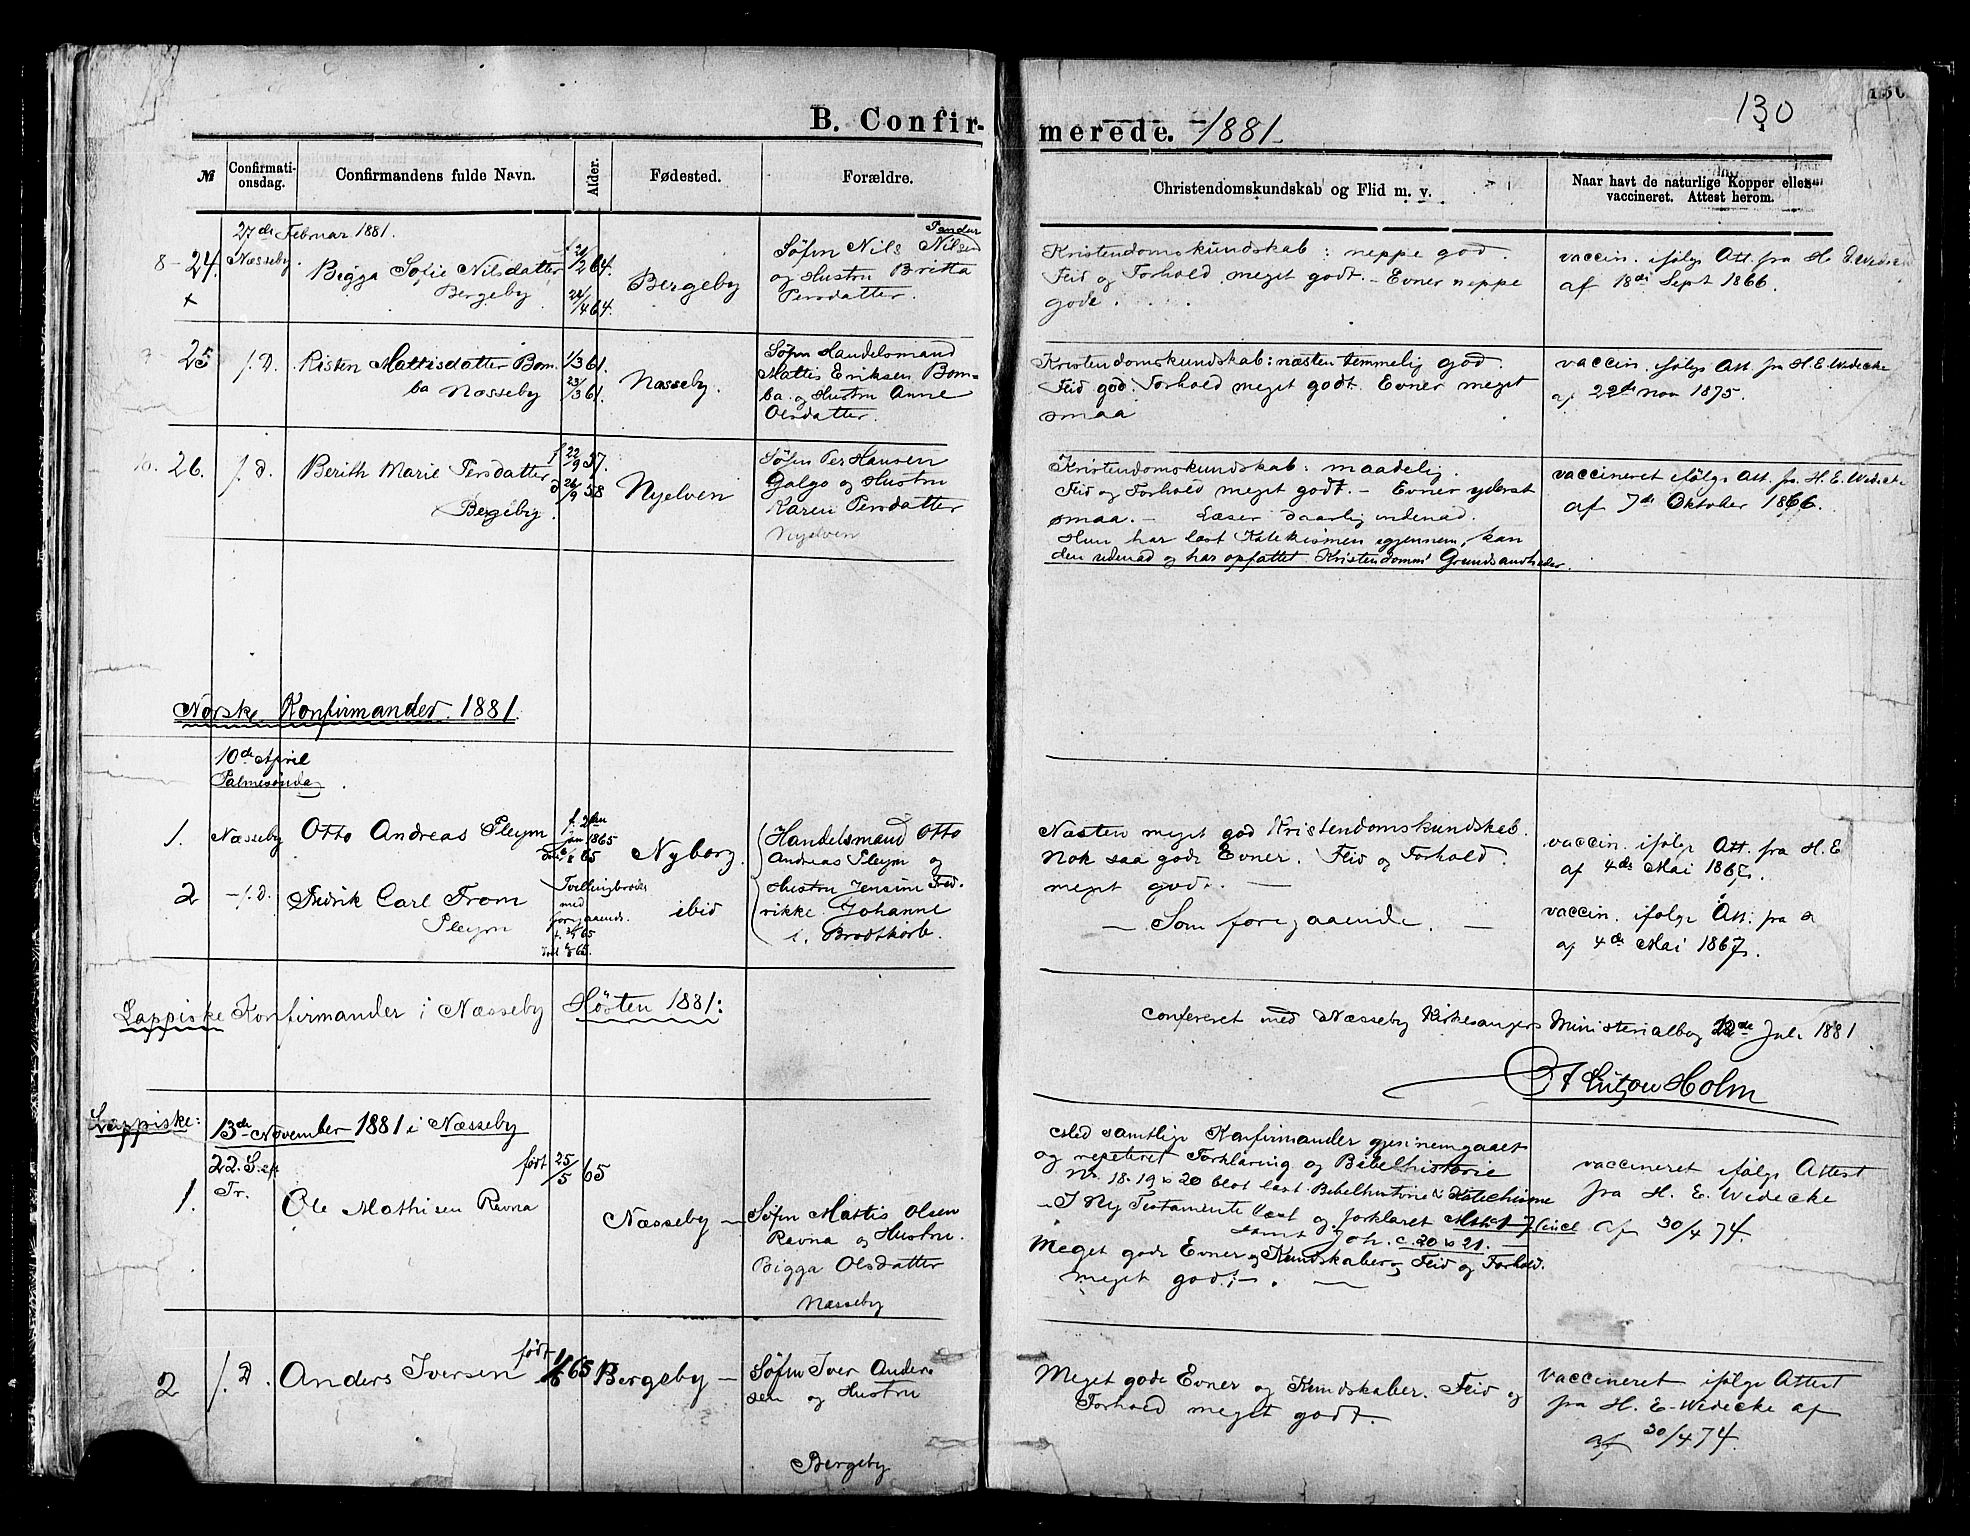 B. Confir-
merede. 1881.
130
№
Confirmati-
onsdag.
Confirmandens fulde Navn.
Alder.
Fødested.
Forældre.
Christendomskundskab og Flid m. v.
Naar havt de naturlige Kopper eller
vaccineret. Attest herom.
27de Februar 1881.
8 - 24.
Næsseby.
Bigga Sofie Nilsdatter
Bergeby
Bergeby
Søfin Nils Nilsen
og Hustru Britta
Persdatter.
Kristendomskundskab: neppe god.
Flid og Forhold meget godt. - Evner neppe
gode.
vaccin. ifølge Att. fra H. E. Wedecke
af 18de Sept 1866.
25
f. D.
Risten Mattisdatter Bom-
ba Næsseby
1/3 61.
23/3 61.
Næsseby.
Søfin Handelsmand
Mattis Eriksen Bom-
ba og Hustru Anne
Olsdatter.
Kristendomskundskab: næsten temmelig god.
Flid god. Forhold meget godt. Evner meget
smaa
vaccin. ifølge Att. fra H. E. Wedecke
af 22de nov 1875.
10. 26.
f. d.
Berith Marie Persdatter
Bergeby.
f 22/9 37.
Nyelven
Søfin Per Hansen
Galgo og Hustru
Karen Persdatter
Nyelven
Kristendomskundskab: maadelig.
Flid og Forhold meget godt. - Evner yderst
smaa. - Læser daarlig indenad.
Hun har læst Katekismen igjennem, kan
den udenad og har opfattet Kristendomms Grundsandheder.
vaccineret ifølge Att. fra H. E. Wedecke
af 7de Oktober 1866.
Norske Konfirmander 1881.
10de April
Palmesøndag.
1.
Næsseby
Otto Andreas Pleym
jan 1865
Nyborg.
Handelsmand Otto
Andreas Pleym og
Hustru Jensine Fred-
rikke Johanne
f. Brodtkorb.
Næsten meget god Kristendomskundskab.
Nok saa gode Evner. Flid og Forhold
meget god.
vaccin. ifølge Att. fra H. E
af 4de Mai 1867.
2
- f. D.
Fredrik Carl From
Pleym
Tvillingbroder
med
foregaaende.
ibid
- Som foregaaende. -
vaccin. ifølge Att. fra
af 4de Mai 1867.
Lappiske Konfirmander i Næsseby Høsten 1881:
Confereret med Næsseby Kirkesangers Ministerialbog 12de Juli 1881
Lützow Holm
Lappiske:
13de November 1881 i Næsseby
22. S. eft
Tr.
1.
Ole Mathisen Ravna
født 25/5 65
Næsseby -
Søfin Mattis Olsen
Ravna og Hustru
Bigga Olsdatter
Næsseby
Med samtlige Konfirmander gjennemgaaet
og repeteret Forklaring og Bibelhistorie
No 18. 19 & 20 blot læst Bibelhistorie & Katechisme
- I Ny Testamente læst og forklaret
samt Joh. c. 20 & 21.
Meget gode Evner og Kundskaber, Flid og Forhold
meget godt. -
vaccineret ifølge Attest
fra H. E. Wedecke
af 30/4 74
2
f. D.
Anders Iversen
født 65
Bergeby -
Søfin Iver Anders
sen og Hustru
Bergeby
Meget gode Evner og Kundskaber. Flid og
Forhold meget godt.
vaccineret ifølge Attest
fra H. E. Wedecke af
af 30/4 74.